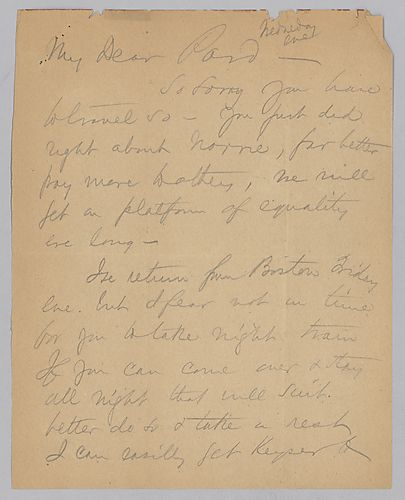 Wednesday
eve
My Dear Pard —
So sorry you have
to travel so — You just did
right about Norrie, far better
pay more to others, we will
get on platform of equality
ere long —
Ive return from Boston Friday
eve. but I fear not in time
for you to take night train
If you can come over & stay
all night that will suit.
better do so & take a rest
I can easily get Keyser to